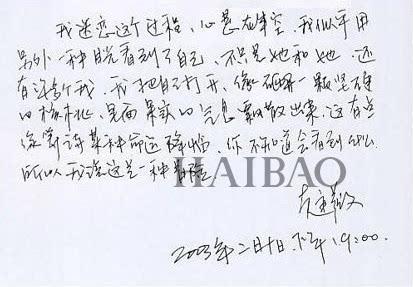 我迷恋这个过程，心悬在半空，我似乎用
另外一种眼光看到了自己，不只是她和她，还
有许多个我，我把自己打开，像砸开一颗坚硬
的核桃，里面果实的气息飘散出来，这有些
像等待某种命运降临，你不知道会看到什么
所以我说这是一种冒险
HAIBAO
2003年二月十日.下午.19:00.